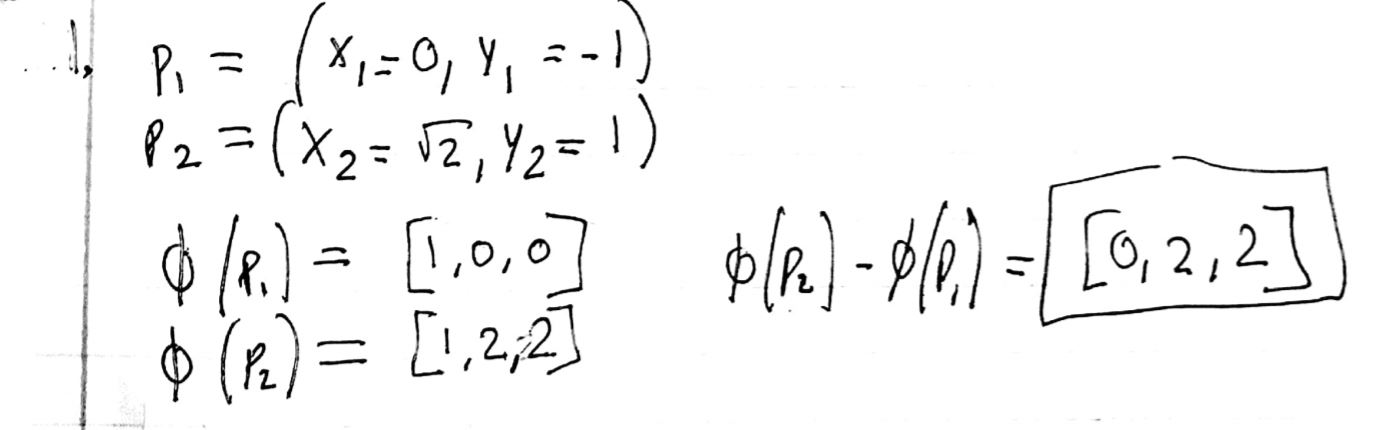 1. P₁ = (X₁=0, Y₁ = -1)
P₂ = (X₂ = √2, Y₂ = 1)
ϕ(P₁) = [1,0,0]
ϕ(P₂) = [1,2,2]
ϕ(P₂) - ϕ(P₁) = [0,2,2]